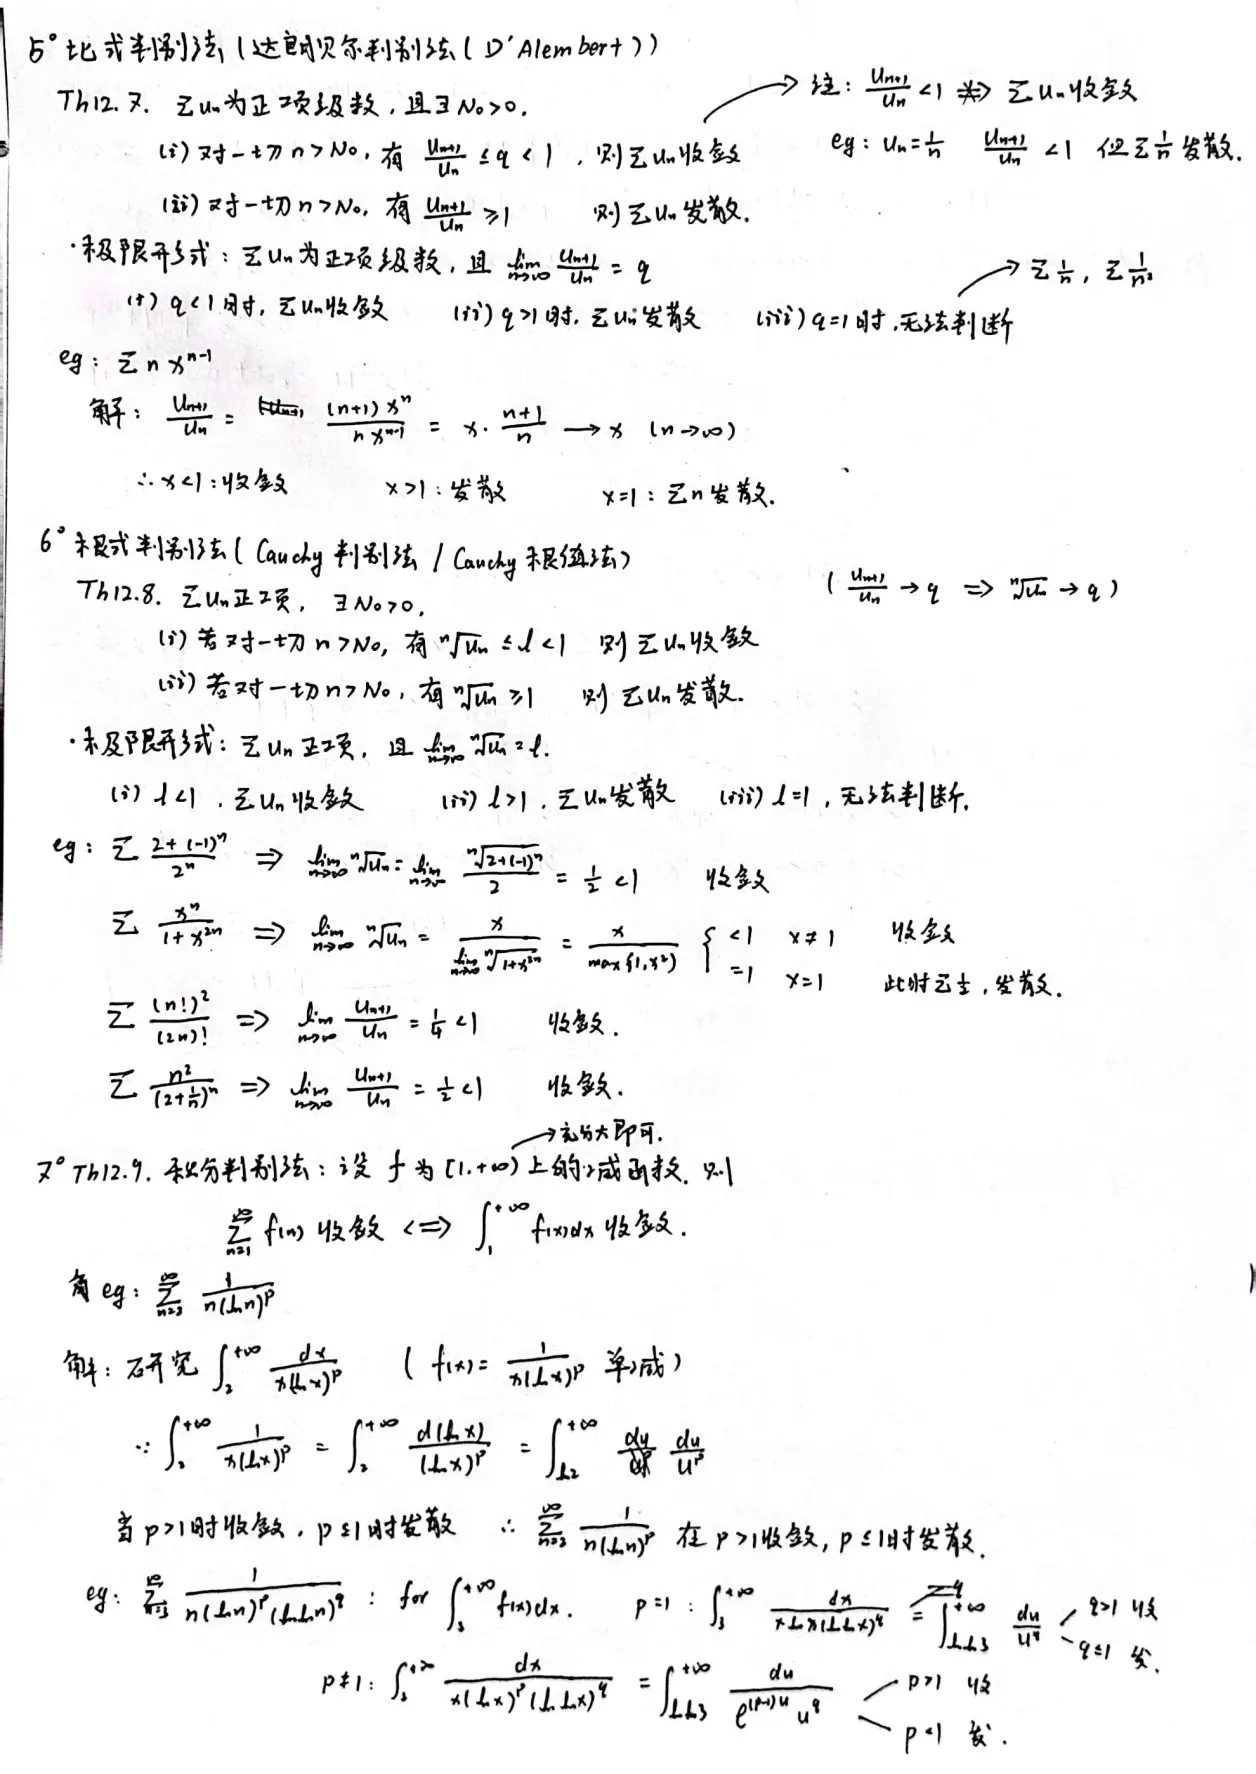 5° 比式判别法(达朗贝尔判别法(D'Alembert))
Th12.7. Σun为正项级数,且∃N₀>0.
→ 注: u_{n+1}/u_n <1 ⇏ Σun收敛
(i) 对一切n>N₀, 有 u_{n+1}/u_n ≤ q < 1, 则Σun收敛
eg: un=1/n  u_{n+1}/u_n <1 但Σ1/n发散.
(ii) 对一切n>N₀, 有 u_{n+1}/u_n ≥1 则Σun发散.
·极限形式: Σun为正项级数, 且 lim_{n→∞} u_{n+1}/u_n = q
→ Σ1/n, Σ1/n²
(i) q<1时, Σun收敛 (ii) q>1时, Σun发散 (iii) q=1时, 无法判断
eg: Σ n x^{n-1}
解: u_{n+1}/u_n = (n+1)x^n / (n x^{n-1}) = x·(n+1)/n → x (n→∞)
∴ x<1: 收敛 x>1: 发散 x=1: Σn发散.
6° 根式判别法(Cauchy判别法/Cauchy根值法)
Th12.8. Σun正项, ∃N₀>0,
( u_{n+1}/u_n → q ⇒ ⁿ√un → q )
(i) 若对一切n>N₀, 有 ⁿ√un ≤ l <1 则Σun收敛
(ii) 若对一切n>N₀, 有 ⁿ√un ≥1 则Σun发散.
·极限形式: Σun正项, 且 lim_{n→∞} ⁿ√un = l.
(i) l<1, Σun收敛 (ii) l>1, Σun发散 (iii) l=1, 无法判断.
eg: Σ (2+(-1)^n)/2^n ⇒ lim_{n→∞} ⁿ√un = lim_{n→∞} ⁿ√(2+(-1)^n)/2 = 1/2 <1 收敛
Σ x^n/(1+x^{2n}) ⇒ lim_{n→∞} ⁿ√un = x/(lim_{n→∞} ⁿ√(1+x^{2n})) = x/max{1,x²} { <1 x≠1 收敛
=1 x=1 此时Σ1/2, 发散.
Σ (n!)²/(2n)! ⇒ lim_{n→∞} u_{n+1}/u_n = 1/4 <1 收敛.
Σ n²/(2+1/n)^n ⇒ lim_{n→∞} u_{n+1}/u_n = 1/2 <1 收敛.
→充分大即可.
7° Th12.9. 积分判别法: 设f为[1,+∞)上的减函数. 则
Σ_{n=1}^{∞} f(n) 收敛 <=> ∫_1^{+∞} f(x)dx 收敛.
eg: Σ_{n=2}^{∞} 1/(n(ln n)^p)
解: 研究 ∫_2^{+∞} dx/(x(ln x)^p) ( f(x)= 1/(x(ln x)^p) 单减)
∵ ∫_2^{+∞} 1/(x(ln x)^p) = ∫_2^{+∞} d(ln x)/(ln x)^p = ∫_{ln2}^{+∞} du/u^p
当p>1时收敛, p≤1时发散 ∴ Σ_{n=2}^{∞} 1/(n(ln n)^p) 在p>1收敛, p≤1时发散.
eg: Σ_{n=3}^{∞} 1/(n(ln n)^p(ln ln n)^q) : for ∫_3^{+∞} f(x)dx. p=1: ∫_3^{+∞} dx/(x ln x(ln ln x)^q) = ∫_{ln ln 3}^{+∞} du/u^q q>1 收
q≤1 发.
p≠1: ∫_3^{+∞} dx/(x(ln x)^p(ln ln x)^q) = ∫_{ln ln 3}^{+∞} du/(e^{(p-1)u} u^q) p>1 收
p<1 发.